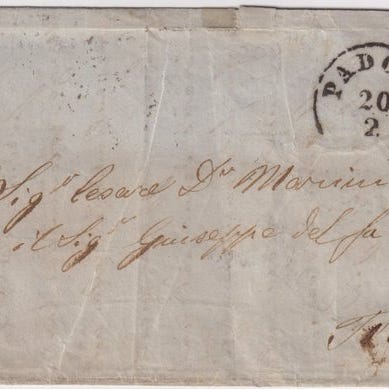 PADO
20
2
Sig.r Cesare D.r Marini
il Sig.r Giuseppe del fa